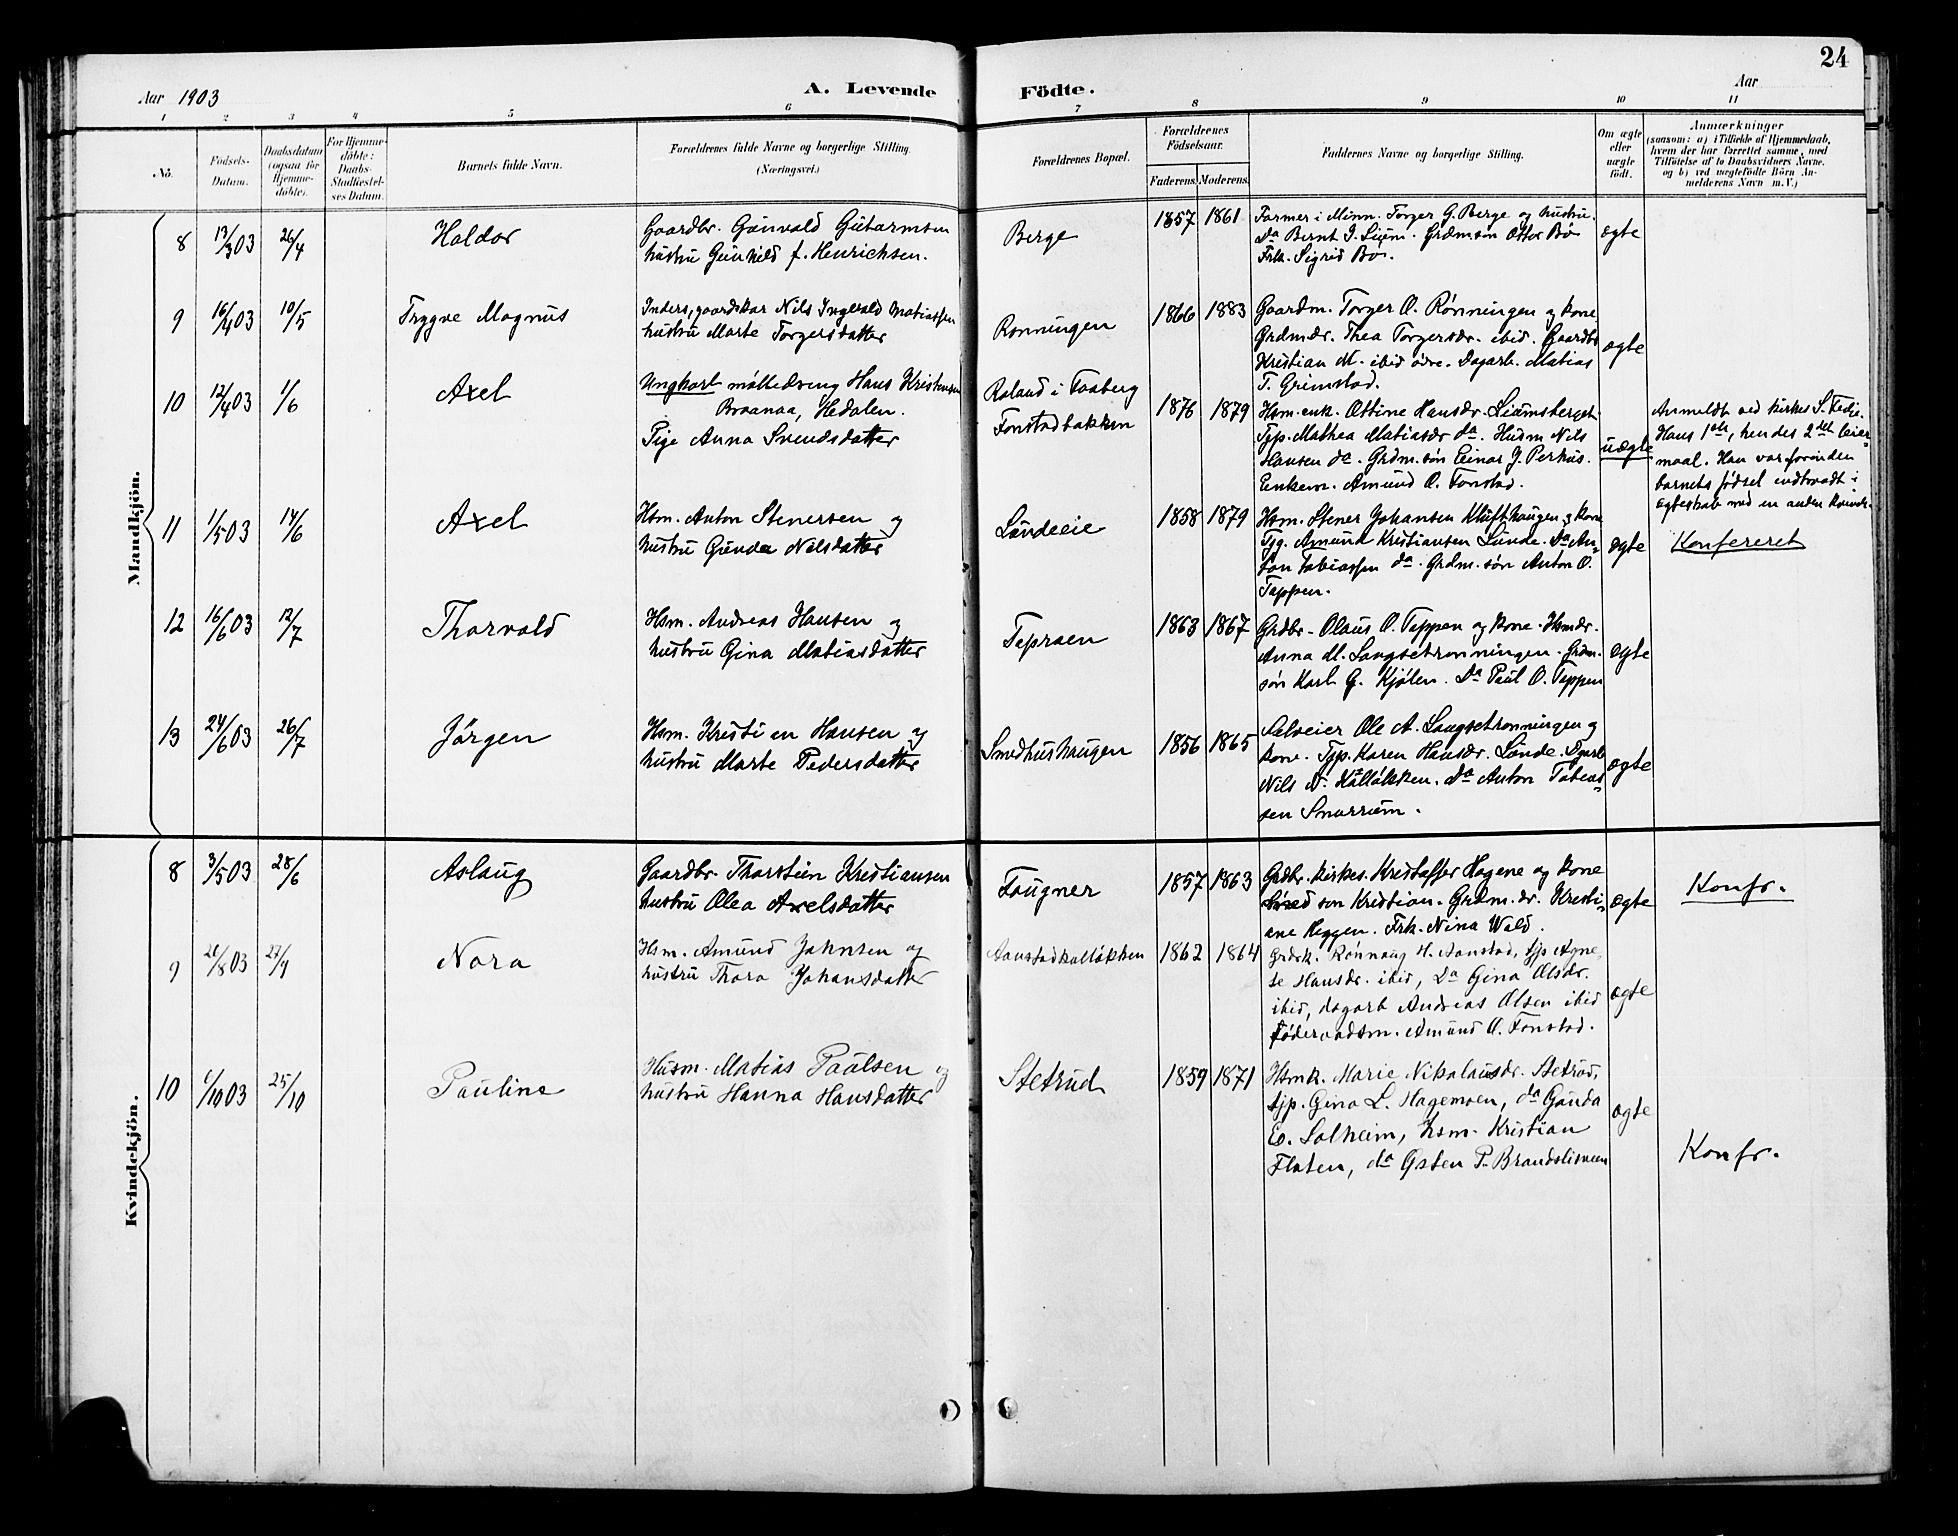 24
Aar 1903
A. Levende
Födte.
Aar
1 2 3 4 5 6 7 8 9 10 11
No.
Fødsels-
Datum.
Daabsdatum
(ogsaa for
Hjemme-
døbte).
For Hjemme-
døbte:
Daabs-
Stadfæstel-
ses Datum.
Barnets fulde Navn.
Forældrenes fulde Navne og borgerlige Stilling
(Næringsvei.)
Forældrenes Bopæl.
Forældrenes
Födselsaar.
Faderens. Moderens.
Faddernes Navne og borgerlige Stilling.
Om ægte
eller
uægte
født.
Anmærkninger
(saasom: a) i Tilfælde af Hjemmedaab,
hvem der har forrettet samme, med
Tilföielse af to Daabsvidners Navne.
og b) ved uægtefødte Börn An-
melderens Navn m. V.)
Mandkjön.
8 13/3 03 26/4
Haldor
Gaardbr. Gunvald Guttormsen
hustru Gunhild f. Henrichsen.
Berge
1857 1861
Farmer i Minn. Torger G. Berge og hustru.
Da Bernt J. Siem. Grdmsøn Otter Bø
Frk. Sigrid Bø.
ægte
9 16/4 03 10/5
Trygve Magnus
Inders, gaardskar Nils Ingevald Matiassen
hustru Marte Torgersdatter
Rønningen
1866 1883
Gaardm. Torger O. Rønningen og kone
Grdmdr. Thea Torgersdr. ibid. Gaardbr
Kristian M. ibid øvre. Dagarb. Matias
T. Grimstad.
ægte
10 12/4 03 1/6
Axel
Ungkarl målledreng Hans Kristensen
Braanaa, Hedalen.
Pige Anna Svendsdatter
Roland i Faaberg
Fonstadbakken
1876 1879
Hsm.enk. Ottine Hansdr. Siemsberget
Tjp. Mathea Matiasdr da. Husm Nils
Hansen da. Grdm.søn Einar J. Perhus.
Enkem. Amund O. Fonstad.
uægte
Anmeldt ved kirkes S. Fedje.
Hans 1ste, hendes 2det leier-
maal. Han var forinden
barnets födsel indtraadt i
ægteskab med en anden kvinde.
11 1/5 03 14/6
Axel
Hsm. Anton Stenersen og
hustru Gunda Nilsdatter
Lundeeie
1858 1879
Hsm. Stener Johansen Klufthaugen og kone
Tyg. Amund Kristiansen Lunde. Da An-
ton Tobiassen da. Grdm. søn Anton O.
Tappen.
ægte
Konfereret
12 16/6 03 12/7
Thorvald
Hsm. Andreas Hansen og
hustru Gina Matiasdatter
Tepraen
1863 1867
Grdbr. Olaus O. Tappen og kone. Hsmdr.
Anna M. Langsetrønningen. Grdm-
søn Karl G. Kjølen. Da Paul O. Tappen
ægte
13 24/6 03 26/7
Jørgen
Hsm. Kristian Hansen og
hustru Marte Pedersdatter
Smedhushaugen
1856 1865
Selveier Ole A. Langsetrønningen og
kone. Tjp. Karen Hansdr. Lunde. Dgarb
Nils N. Kalløkken. da Anton Tobias-
sen Snerrum.
ægte
Kvindekjön.
8 3/5 03 28/6
Aslaug
Gaardbr. Thorstein Kristiansen
hustru Olea Axelsdatter
Fougner
1857 1863
Grdbr. kirkes. Kristoffer Hagene og kone
søn Kristian. Grdm.dr. Kristi-
ane Heggen. Frk. Nina Wald.
ægte
Konfr.
9 20/8 03 27/9
Nora
Hsm. Amund Johnsen og
hustru Thora Johansdatter
Aanstadkalløkken
1862 1864
Grdrk. Rønnaug H. Aanstad, tjp Agne-
te Hansdr. ibid, Da Gina Olsdr.
ibid, dagarb Andreas Olsen ibid
föderaadsm. Amund O. Fonstad.
ægte
10 6/10 03 25/10
Pauline
Husm. Matias Paulsen og
hustru Hanna Hansdatter
Stetrud
1859 1871
Hsmk. Marie Nikolausdr. Stetrud,
tjp. Gina L. Hagemoen, da Gunda
Ev. Solheim, hsm. Kristian
Flaten, da Østen P. Brandslismoen
ægte
Konfr.